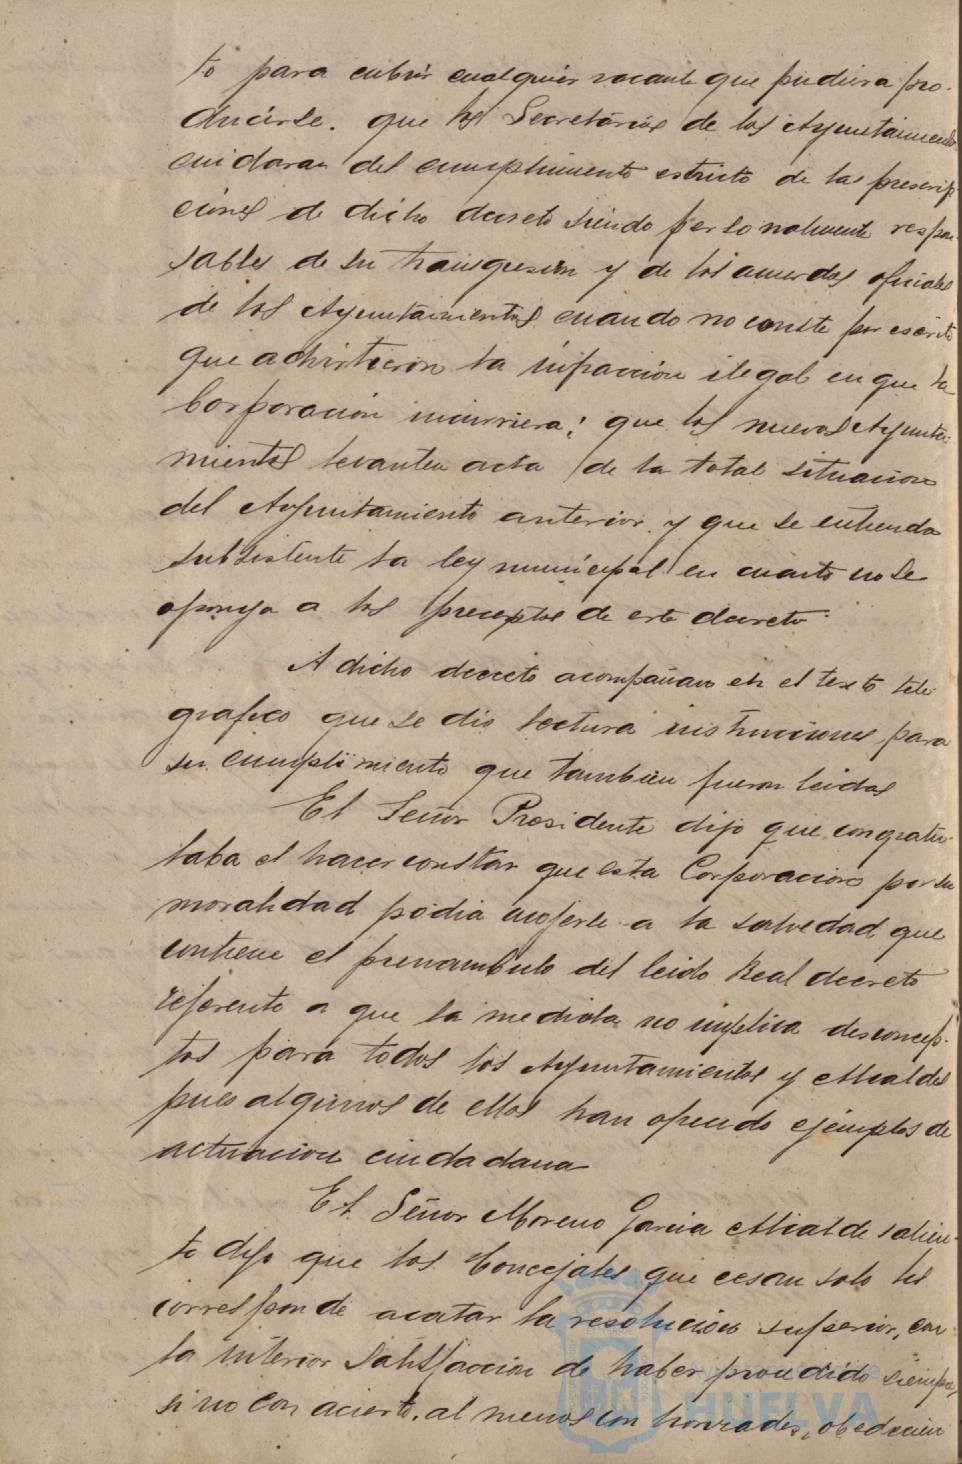 to para cubrir cualquier vacante que pudiera pro-
ducirse. que los Secretarios de los Ayuntamientos
cuidaran del cumplimiento estricto de las prescrip
ciones de dicho decreto siendo personalmente respon-
sables de su trasgresión y de los acuerdos oficiales
de los Ayuntamientos cuando no conste por escrito
que advirtieron la infracción ilegal en que la
Corporación incurriera; que los nuevos Ayunta-
mientos levanten acta de la total situacion
del Ayuntamiento anterior y que se entienda
subsistente la ley municipal en cuanto no se
oponga a los preceptos de este decreto.
A dicho decreto acompañan en el texto tele-
grafico que se dio lectura instrucciones para
su cumplimiento que tambien fueron leidas
El Señor Presidente dijo que congratu-
laba el hacer constar que esta Corporacion por su
moralidad podia acojerse a la salvedad que
contiene el preeambulo del leido Real decreto
referente a que la medida no implica desconcep-
tos para todos los Ayuntamientos y Alcaldes
pues algunos de ellos han ofrecido ejemplos de
actuacion ciudadana
El Señor Moreno Garcia Alcalde salien-
te dijo que los Concejales que cesan solo les
corresponde acatar la resolucion superior, con
la interior satisfaccion de haber procedido siempre,
si no con acierto, al menos con honrades, obedecien
HUELVA